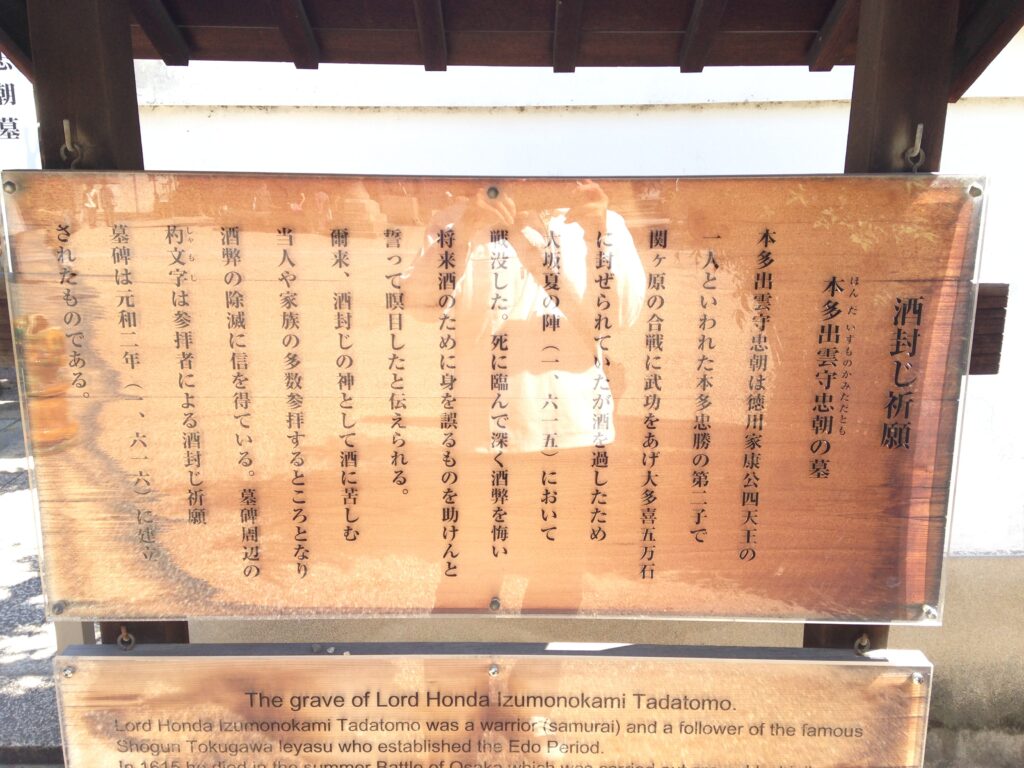 酒封じ祈願
ほんだいずものかみただとも
本多出雲守忠朝の墓
本多出雲守忠朝は徳川家康公四天王の
一人といわれた本多忠勝の第二子で
関ヶ原の合戦に武功をあげ大多喜五万石
に封ぜられていたが酒を過したため
大坂夏の陣（一、六一五）において
戦没した。死に臨んで深く酒弊を悔い
将来酒のために身を誤るものを助けんと
誓って瞑目したと伝えられる。
爾来、酒封じの神として酒に苦しむ
当人や家族の多数参拝するところとなり
酒弊の除滅に信を得ている。墓碑周辺の
しゃもじ
杓文字は参拝者による酒封じ祈願
墓碑は元和二年（一、六一六）に建立
されたものである。
忠朝墓
The grave of Lord Honda Izumonokami Tadatomo.
Lord Honda Izumonokami Tadatomo was a warrior (samurai) and a follower of the famous
Shogun Tokugawa Ieyasu who established the Edo Period.
In 1615 he died in the summer Battle of Osaka which was carried out